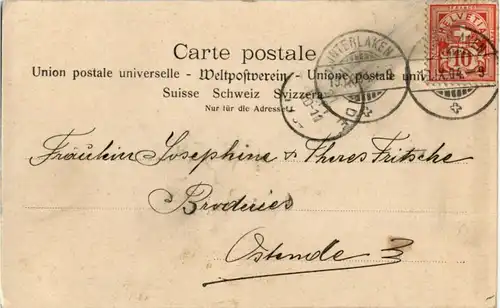 Carte postale
Union postale universelle - Weltpostverein - Unione postale univ
Suisse Schweiz Svizzera
Nur für die Adresse
HELVETIA
10
INTERLAKEN
IX.04.-9
Fräulein Josephine & Theres Fritsche
Broderies
Ostende 3